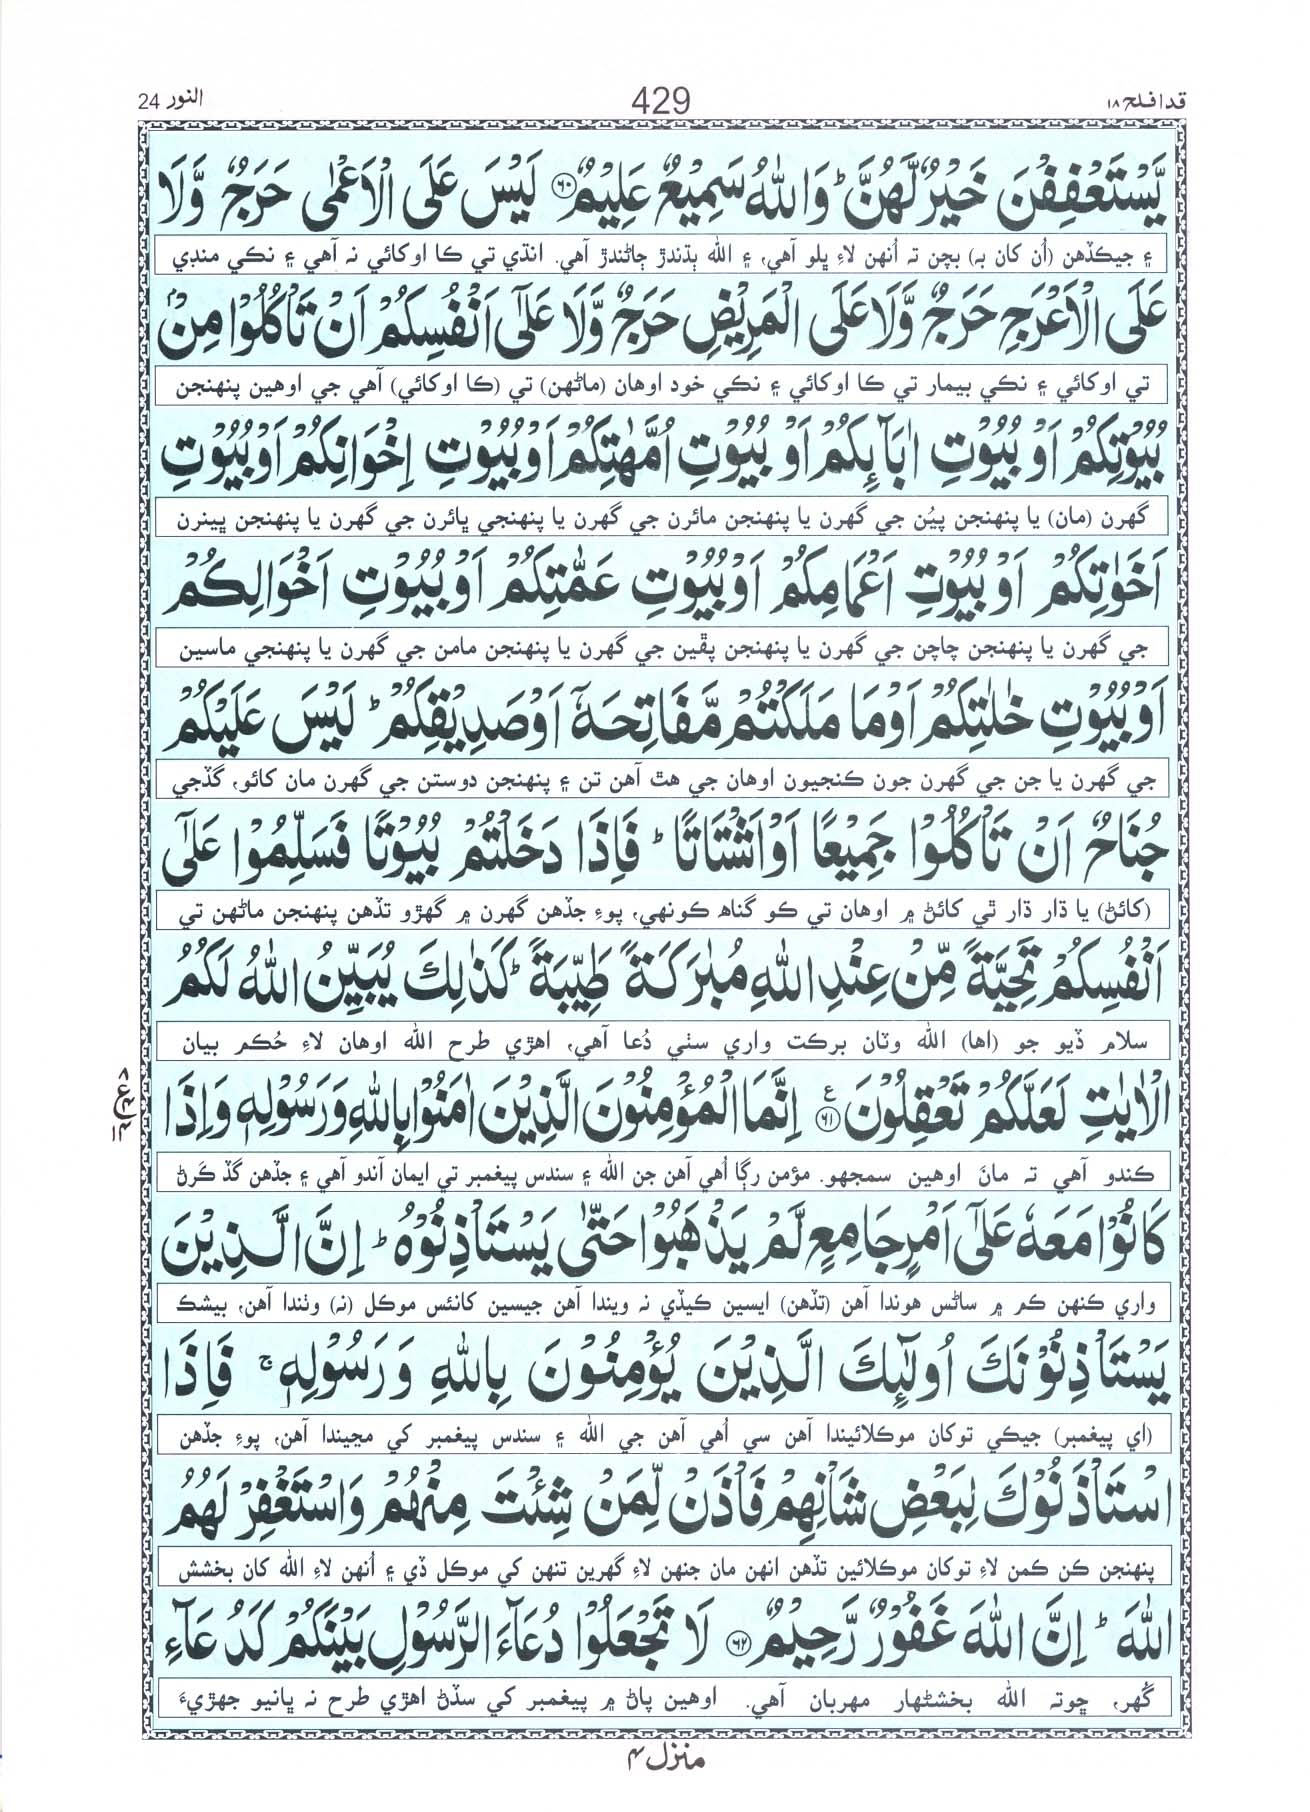 قد افلح ١٨
429
النور 24
يَّسْتَعْفِفْنَ خَيْرٌ لَّهُنَّ ؕ وَاللّٰهُ سَمِيْعٌ عَلِيْمٌ ﴿۶۰﴾ لَيْسَ عَلَى الْاَعْمٰى حَرَجٌ وَّلَا
۽ جيڪڏهن (اُن کان به) بچن ته اُنهن لاءِ ڀلو آهي، ۽ الله ٻڌندڙ ڄاڻندڙ آهي. انڌي تي ڪا اوکائي نه آهي ۽ نڪي منڊي
عَلَى الْاَعْرَجِ حَرَجٌ وَّلَا عَلَى الْمَرِيْضِ حَرَجٌ وَّلَا عَلٰٓى اَنْفُسِكُمْ اَنْ تَاْكُلُوْا مِنْۢ
تي اوکائي ۽ نڪي بيمار تي ڪا اوکائي ۽ نڪي خود اوهان (ماڻهن) تي (ڪا اوکائي) آهي جي اوهين پنهنجن
بُيُوْتِكُمْ اَوْ بُيُوْتِ اٰبَآئِكُمْ اَوْ بُيُوْتِ اُمَّهٰتِكُمْ اَوْ بُيُوْتِ اِخْوَانِكُمْ اَوْ بُيُوْتِ
گهرن (مان) يا پنهنجن پيئُن جي گهرن يا پنهنجن مائرن جي گهرن يا پنهنجي ڀائرن جي گهرن يا پنهنجن ڀينرن
اَخَوٰتِكُمْ اَوْ بُيُوْتِ اَعْمَامِكُمْ اَوْ بُيُوْتِ عَمّٰتِكُمْ اَوْ بُيُوْتِ اَخْوَالِكُمْ
جي گهرن يا پنهنجن چاچن جي گهرن يا پنهنجن پڦين جي گهرن يا پنهنجن مامن جي گهرن يا پنهنجي ماسين
اَوْ بُيُوْتِ خٰلٰتِكُمْ اَوْ مَا مَلَكْتُمْ مَّفَاتِحَهٗۤ اَوْ صَدِيْقِكُمْ ؕ لَيْسَ عَلَيْكُمْ
جي گهرن يا جن جي گهرن جون ڪنجيون اوهان جي هٿ آهن تن ۽ پنهنجن دوستن جي گهرن مان کائو، گڏجي
جُنَاحٌ اَنْ تَاْكُلُوْا جَمِيْعًا اَوْ اَشْتَاتًا ؕ فَاِذَا دَخَلْتُمْ بُيُوْتًا فَسَلِّمُوْا عَلٰٓى
(کائڻ) يا ڌار ڌار ٿي کائڻ ۾ اوهان تي ڪو گناه ڪونهي، پوءِ جڏهن گهرن ۾ گهڙو تڏهن پنهنجن ماڻهن تي
اَنْفُسِكُمْ تَحِيَّةً مِّنْ عِنْدِ اللّٰهِ مُبٰرَكَةً طَيِّبَةً ؕ كَذٰلِكَ يُبَيِّنُ اللّٰهُ لَكُمُ
سلام ڏيو جو (اها) الله وٽان برڪت واري سٺي دُعا آهي، اهڙي طرح الله اوهان لاءِ حُڪم بيان
الْاٰيٰتِ لَعَلَّكُمْ تَعْقِلُوْنَ ﴿۶۱﴾ ع اِنَّمَا الْمُؤْمِنُوْنَ الَّذِيْنَ اٰمَنُوْا بِاللّٰهِ وَرَسُوْلِهٖ وَاِذَا
ڪندو آهي ته مانَ اوهين سمجهو. مؤمن رڳا اُهي آهن جن الله ۽ سندس پيغمبر تي ايمان آندو آهي ۽ جڏهن گڏ ڪَرڻ
كَانُوْا مَعَهٗ عَلٰٓى اَمْرٍ جَامِعٍ لَّمْ يَذْهَبُوْا حَتّٰى يَسْتَاْذِنُوْهُ ؕ اِنَّ الَّذِيْنَ
واري ڪنهن ڪم ۾ ساڻس هوندا آهن (تڏهن) ايسين ڪيڏي نه ويندا آهن جيسين کانئس موڪل (نه) وٺندا آهن، بيشڪ
يَسْتَاْذِنُوْنَكَ اُولٰٓئِكَ الَّذِيْنَ يُؤْمِنُوْنَ بِاللّٰهِ وَرَسُوْلِهٖ ۚ فَاِذَا
(اي پيغمبر) جيڪي توکان موڪلائيندا آهن سي اُهي آهن جي الله ۽ سندس پيغمبر کي مڃيندا آهن، پوءِ جڏهن
اسْتَاْذَنُوْكَ لِبَعْضِ شَاْنِهِمْ فَاْذَنْ لِّمَنْ شِئْتَ مِنْهُمْ وَاسْتَغْفِرْ لَهُمُ
پنهنجن ڪن ڪمن لاءِ توکان موڪلائين تڏهن انهن مان جنهن لاءِ گهرين تنهن کي موڪل ڏي ۽ اُنهن لاءِ الله کان بخشش
اللّٰهَ ؕ اِنَّ اللّٰهَ غَفُوْرٌ رَّحِيْمٌ ﴿۶۲﴾ لَا تَجْعَلُوْا دُعَآءَ الرَّسُوْلِ بَيْنَكُمْ كَدُعَآءِ
گُهر، ڇوته الله بخشڻهار مهربان آهي. اوهين پاڻ ۾ پيغمبر کي سڏڻ اهڙي طرح نه ڀانيو جهڙيءَ
منزل ۴